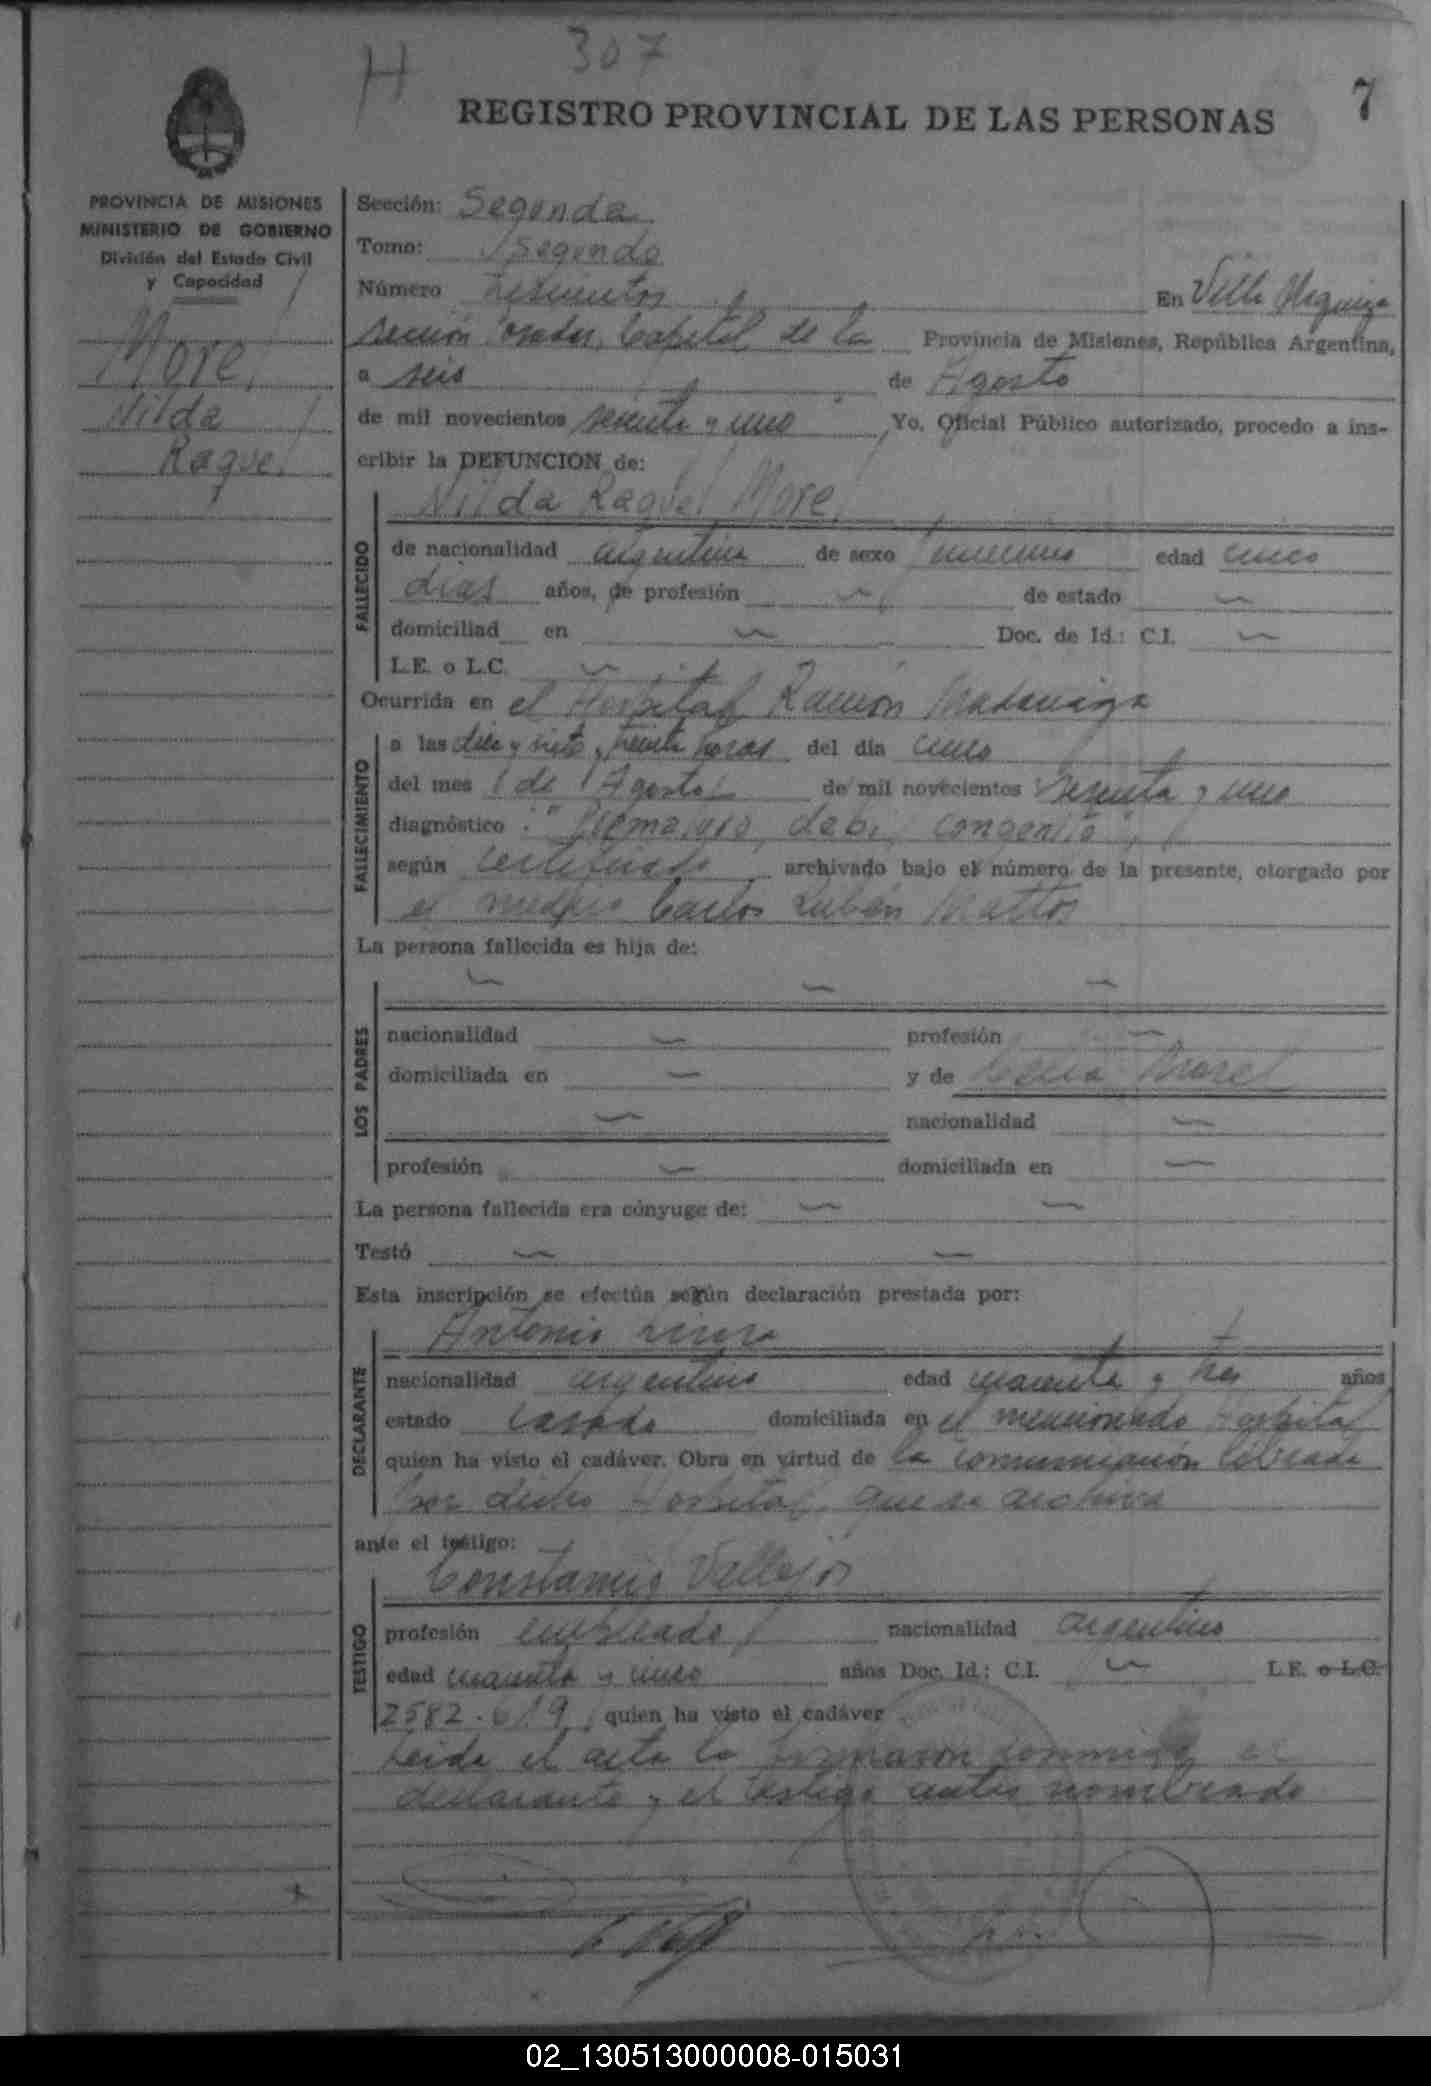 H 307
7
REGISTRO PROVINCIAL DE LAS PERSONAS
PROVINCIA DE MISIONES
MINISTERIO DE GOBIERNO
División del Estado Civil
y Capacidad
Morel
Nilda
Raquel
Sección: Segunda
Tomo: Segundo
Número
En Villa Urquiza
sección Posadas, Capital de la Provincia de Misiones, República Argentina,
a seis de Agosto
de mil novecientos sesenta y uno Yo, Oficial Público autorizado, procedo a ins-
cribir la DEFUNCION de:
Nilda Raquel Morel
FALLECIDO
de nacionalidad argentina de sexo femenino edad cinco
dias años, de profesión de estado
domiciliad en Doc. de Id.: C.I.
L.E. o L.C.
Ocurrida en el Hospital Ramón Madariaga
FALLECIMIENTO
a las diez y siete y treinta horas del día cinco
del mes de Agosto de mil novecientos sesenta y uno
diagnóstico: "Prematuro, deb. congenito",
según certificado archivado bajo el número de la presente, otorgado por
el medico Carlos Rubén Mattos
La persona fallecida es hija de:
LOS PADRES
nacionalidad profesión
domiciliada en y de Celia Morel
nacionalidad
profesión domiciliada en
La persona fallecida era cónyuge de:
Testó
Esta inscripción se efectúa según declaración prestada por:
Antonio
DECLARANTE
nacionalidad argentino edad cuarenta y tres años
estado casado domiciliada en el mencionado Hospital
quien ha visto el cadáver. Obra en virtud de la comunicación librada
por dicho Hospital, que se archiva
ante el testigo:
Constancio Vallejos
TESTIGO
profesión empleado nacionalidad argentino
edad cuarenta y cinco años Doc. Id.: C.I. L.E. o L.C.
2582.619 quien ha visto el cadáver
Leida el acta la firmaron conmigo el
declarante y el testigo antes nombrado
02_130513000008-015031